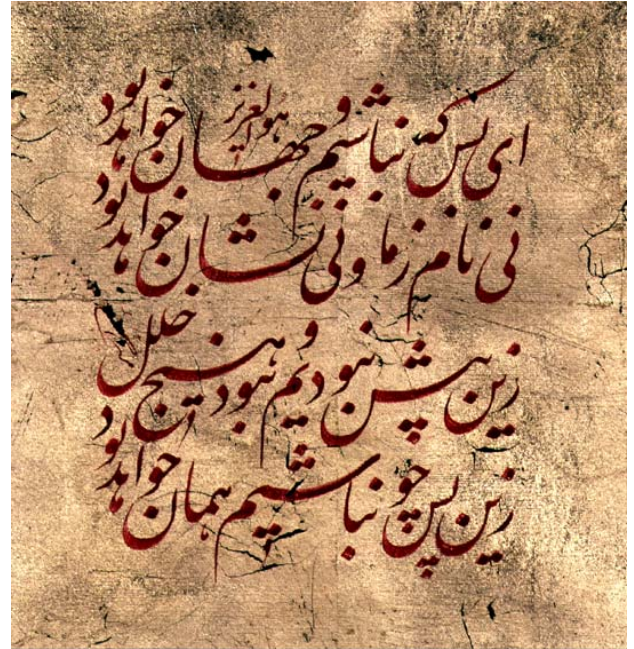 هوالعزیز
ای بس که نباشیم و جهان خواهد بود
نی نام ز ما و نی نشان خواهد بود
زین پیش نبودیم و نبود هیچ خلل
زین پس چو نباشیم همان خواهد بود